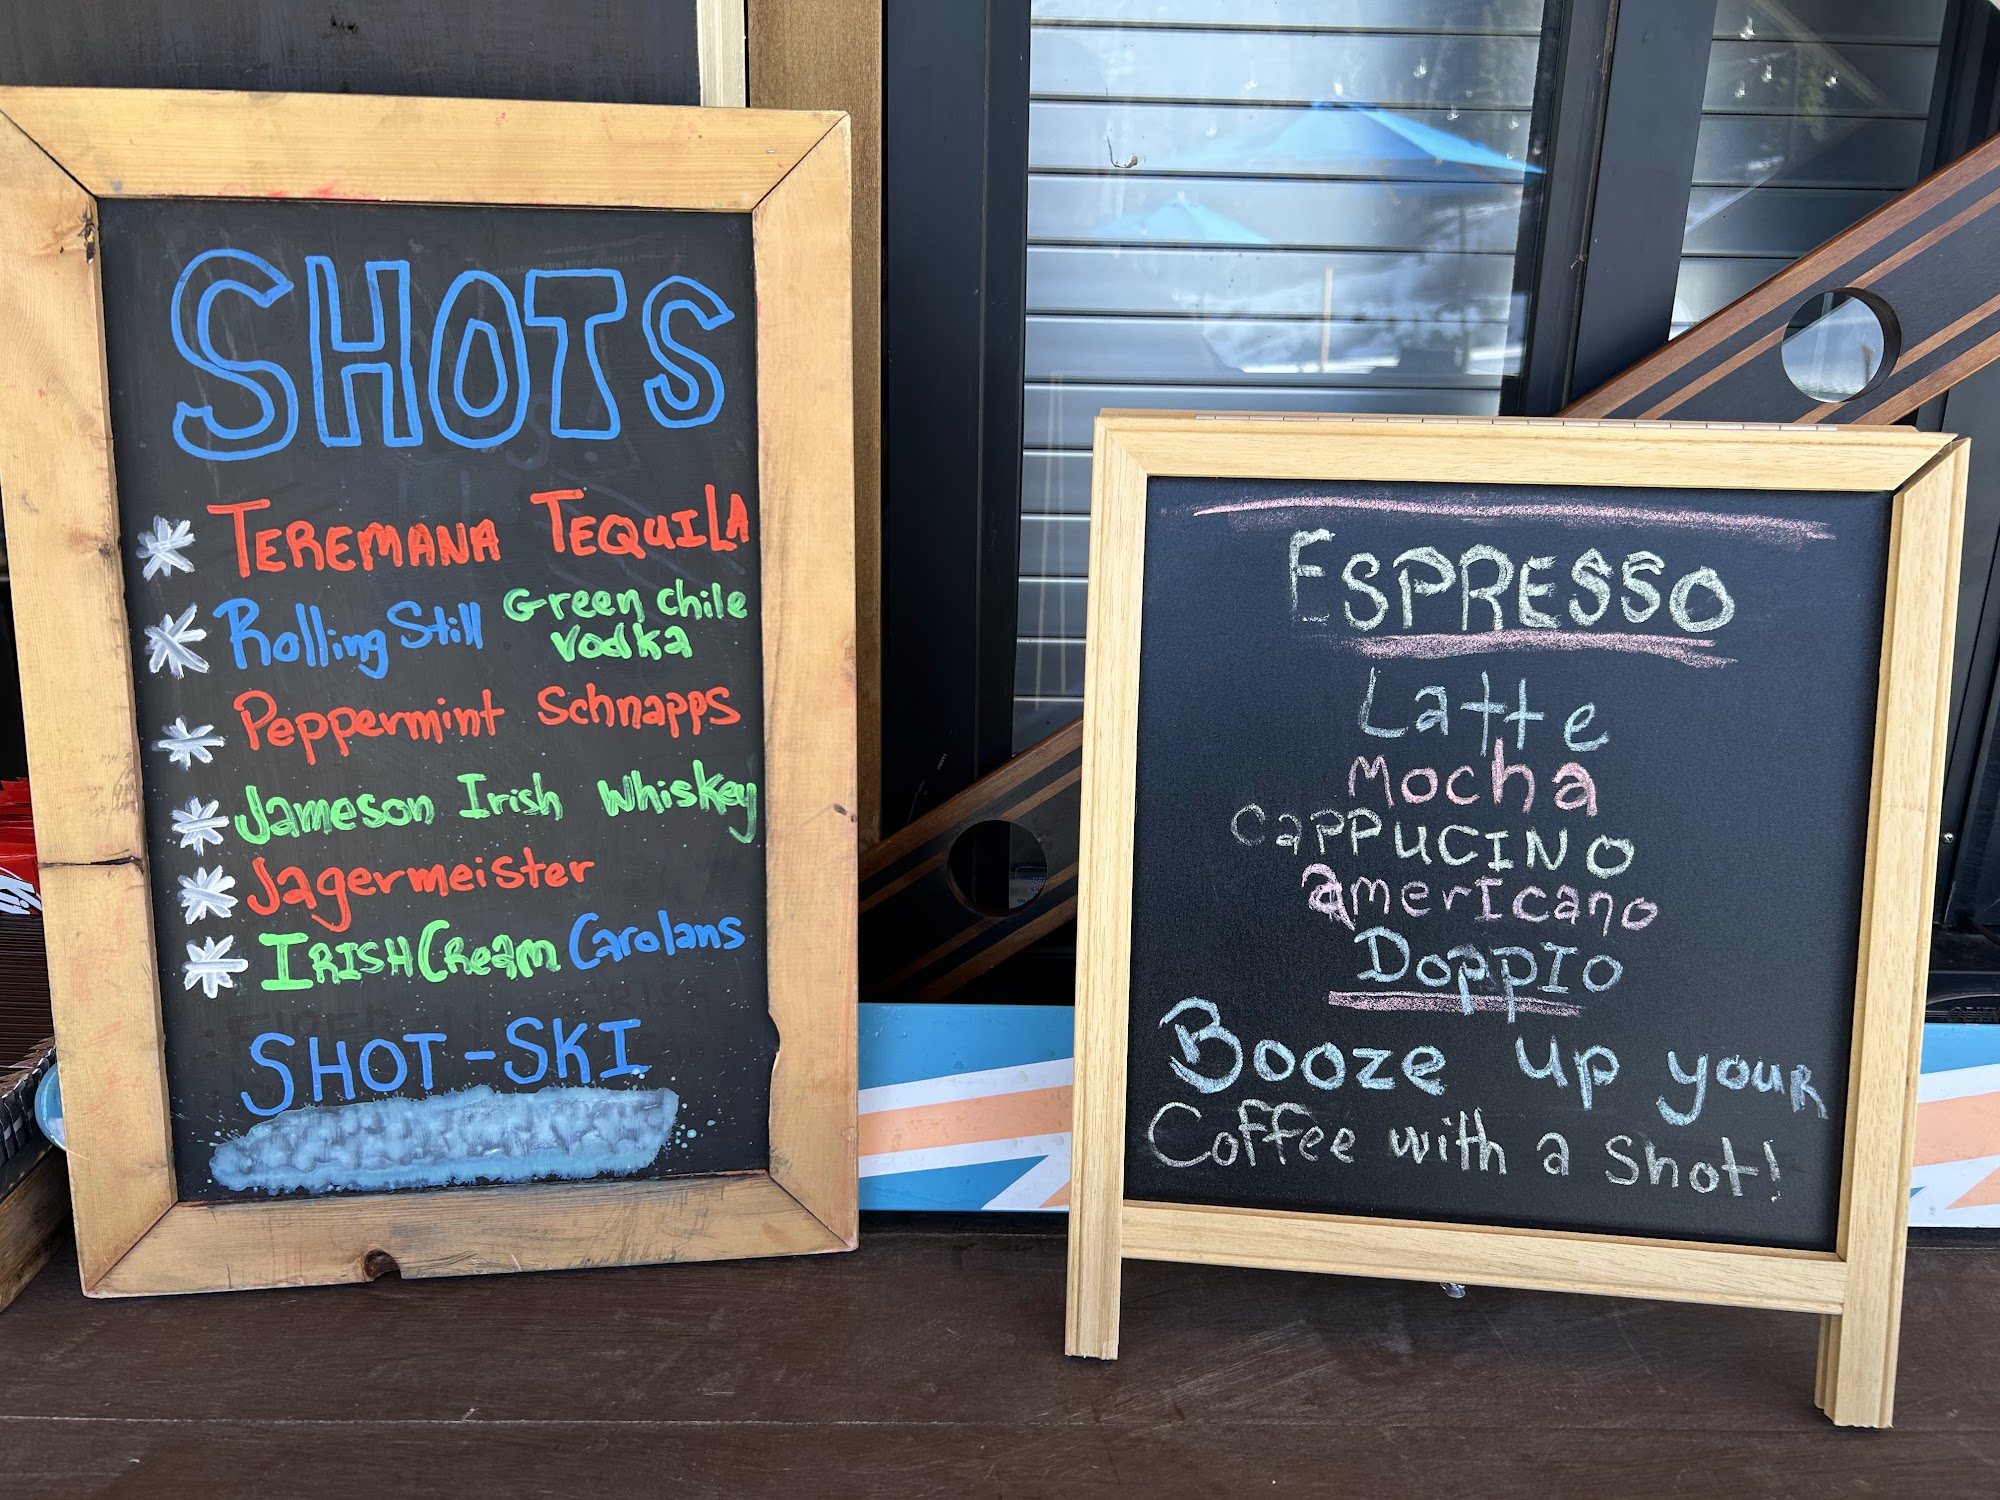 SHOTS
TEREMANA TEQUILA
Rolling Still Green chile
vodka
Peppermint Schnapps
Jameson Irish Whiskey
Jagermeister
IRISH CREAM Carolans
SHOT-SKI
ESPRESSO
Latte
Mocha
CAPPUCINO
americano
DoppIo
Booze up youR
Coffee with a shot!